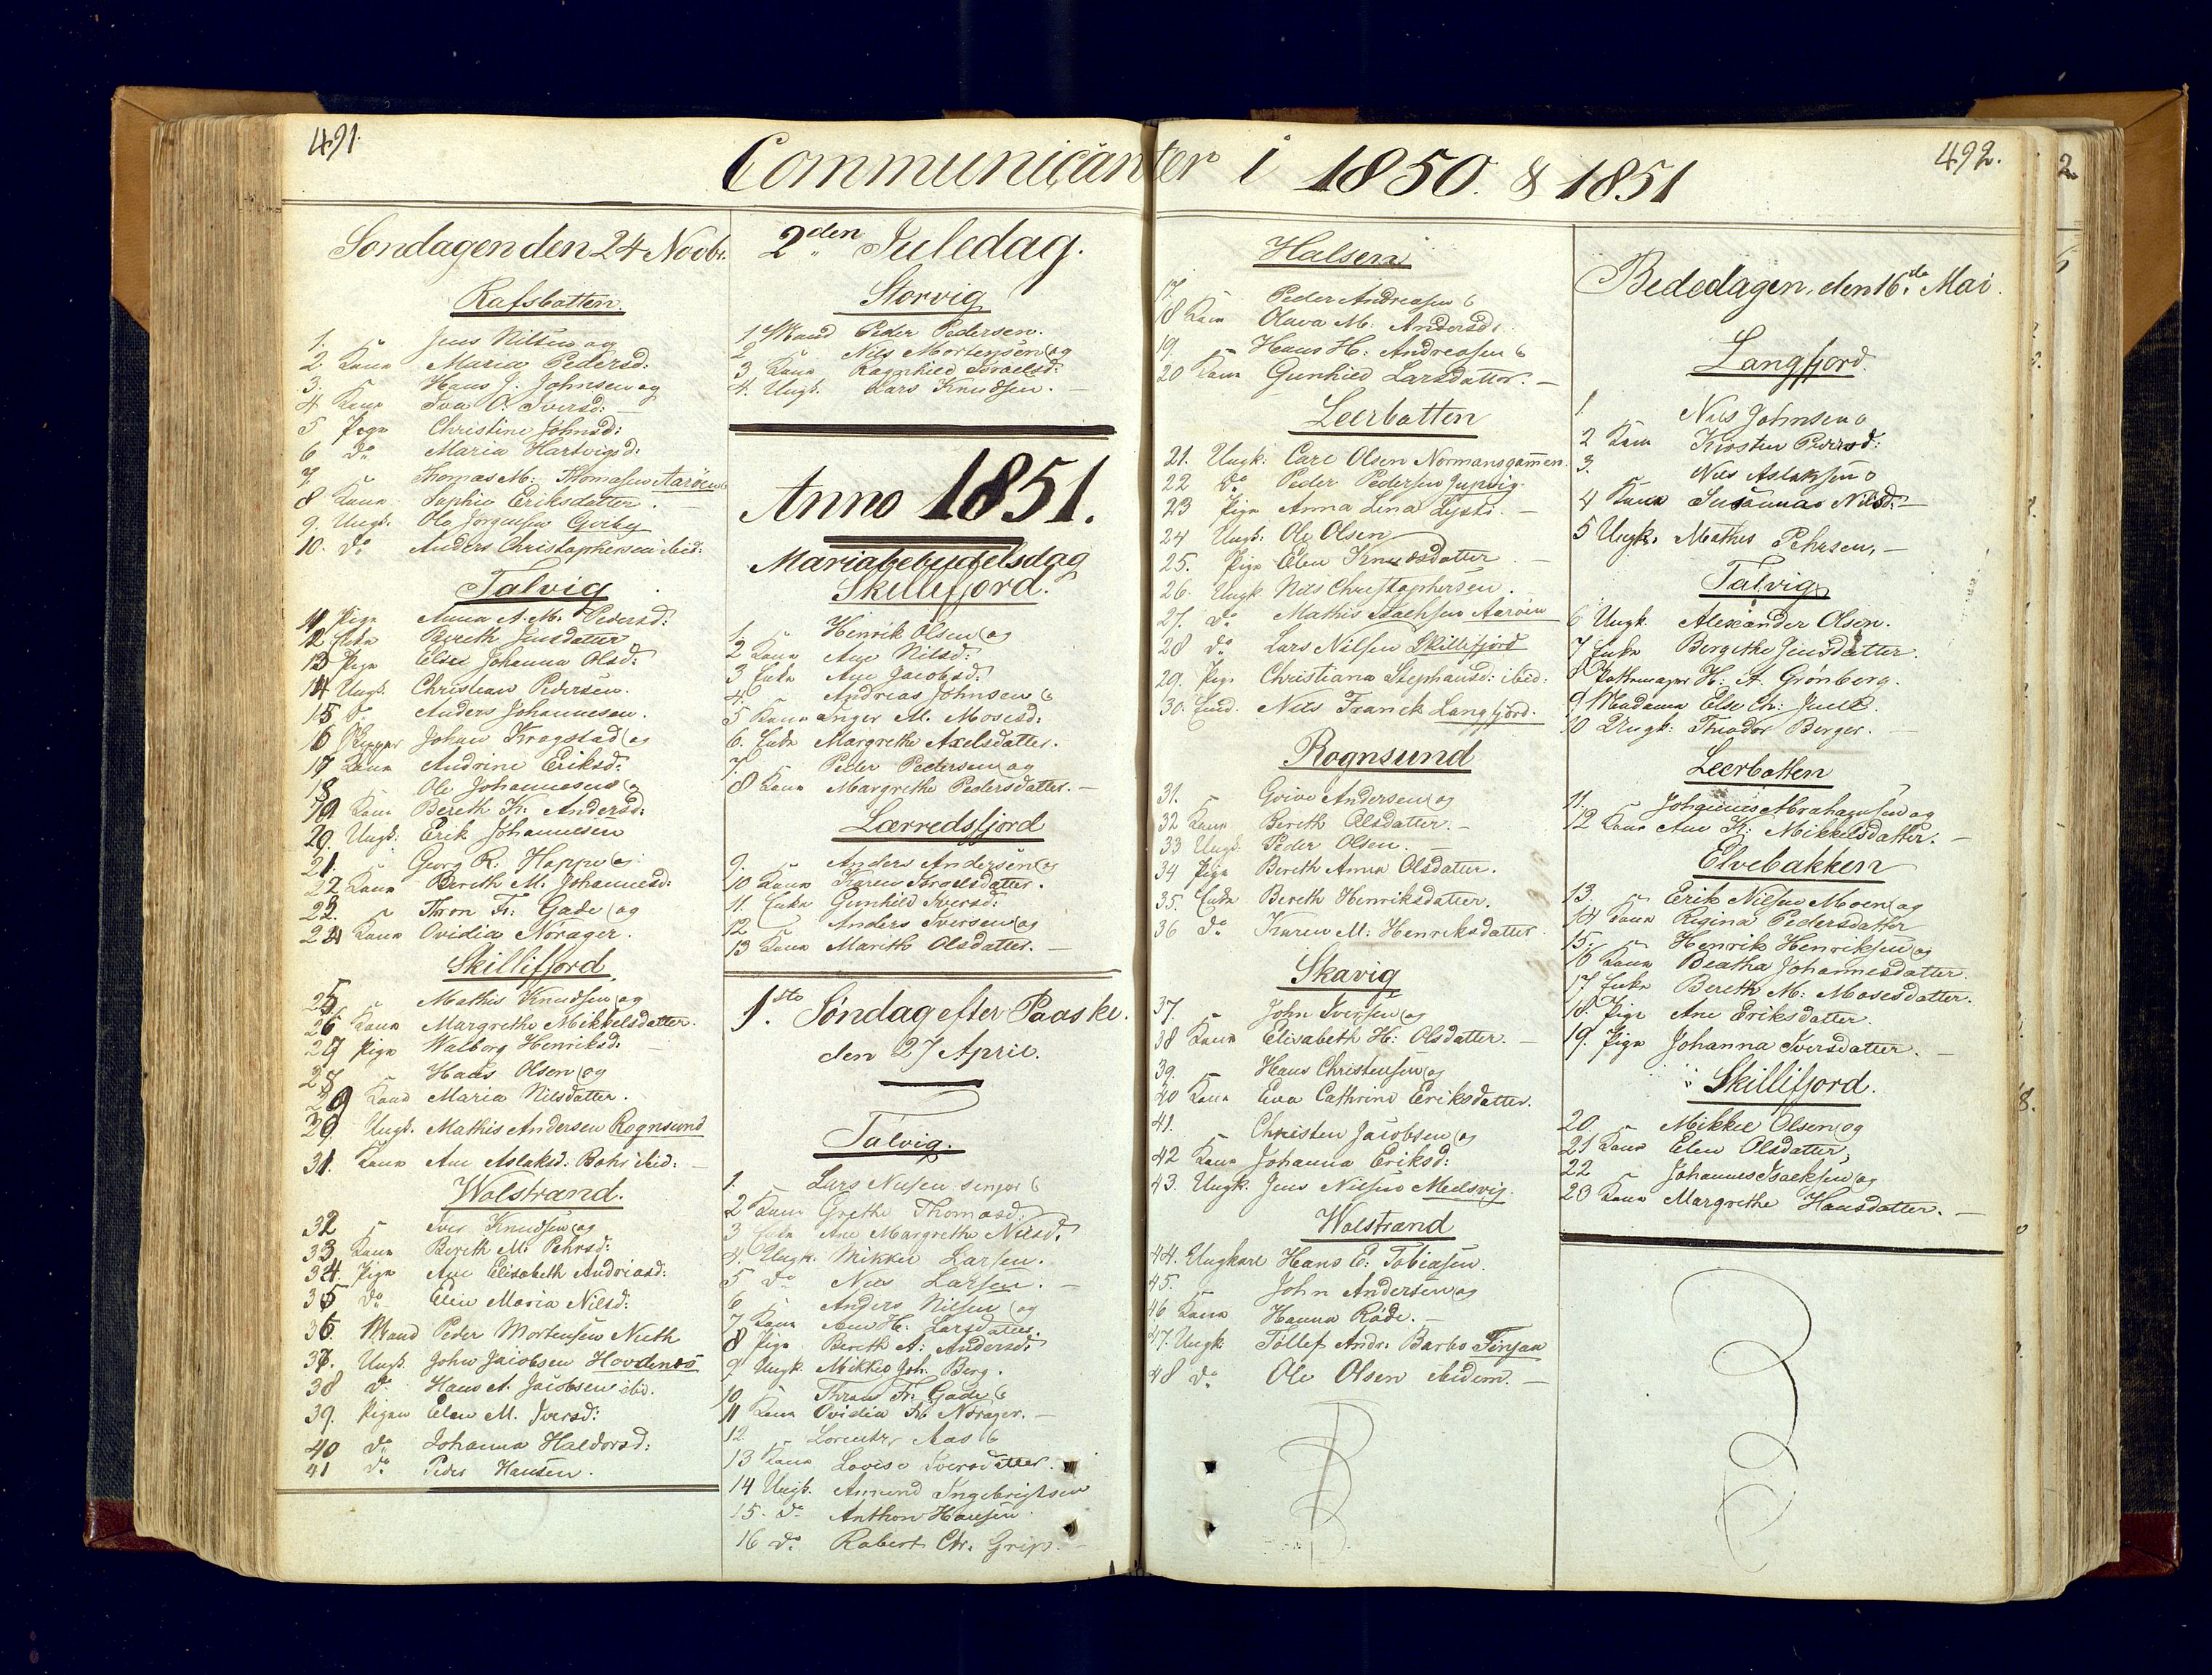 491.
Communicanter i 1850. & 1851
492.
Søndagen den 24 Novbr.
Rafsbotten.
1. " Jens Nilsen og
2. Kone Maria Pedersd:
3. " Hans J. Johnsen og
4 Kone Iva O. Iversd: —
5 Pige Christine Johnsd:
6 do Maria Hartvigsd:
7 Thomas M: Thomasen Aarøen
8 Kone Sophie Eriksdatter. —
9. Ungk. Ole Jørgensen
10. do Anders Christophersen ibid:
Talvig
11 Pige Anna A. M. Pedersd:
12 Enke Bereth Jensdatter
13 Pige Else Johanna Olsd:
14 Ungk. Christian Pedersen.
15 do Anders Johannesen.
16 Johan Krogstad og
17 Kone Andrine Eriksd:
18 " Ole Johannesen og
19 Kone Bereth K. Andersd:
20. Ungk: Erik Johannesen
21. " Georg R. Hoppe og
22 Kone Bereth M. Johannesd:
23. " Thron Fr: Gade og
24 Kone Ovidia Norager.
Skillifjord
25. " Mathis Knudsen og
26 Kone Margrethe Mikkelsdatter.
27 Pige Walborg Henriksd:
28 " Hans Olsen og
29 Kone Maria Nilsdatter.
30 Ungk. Mathis Andersen Rognsund
31. Kone Ane Aslaksd: ibid: —
Wolstrand.
32 " Iver Knudsen og
33 Kone Bereth M: Pehrsd:
34. Pige Ane Elisabeth Andreasd:
35 do Elen Maria Nilsd:
36. Mand Peder Mortensen
37. Ungk. John Jacobsen
38 do Hans A. Jacobsen ibd.
39. Pigen Elen M. Iversd:
40 do Johanna Haldorsd:
41 do Peder Hansen.
2den Juledag.
Storvig
1. Mand Peder Pedersen.
2 Nils Mortensen og
3. Kone Ragnhild Israelsd:
4. Ungk. Lars Knudsen. —
Anno 1851.
Mariabebudelsdag
Skillefjord.
1. " Henrik Olsen og
2 Kone Ane Nilsd:
3 Enke Ane Jacobsd:
4. " Andreas Johnsen &
5 Kone Inger M. Mosesd:
6. Enke Margrethe Axelsdatter.
7. " Peder Pedersen og
8 Kone Margrethe Pedersdatter. —
Lærredsfjord
9. " Anders Andersen og
10 Kone Karen Israelsdatter.
11. Enke Gunhild Iversd:
12 Anders Iversen og
13 Kone Marith Olsdatter. —
1ste Søndag efter Paaske.
den 27 April.
Talvig.
1. Lars Nilsen senjor &
2 Kone Grethe Thomasd:
3 Enke Ane Margrethe Nilsd.
4. Ungk. Mikkel Larsen.
5 do Nils Larsen. —
6 " Anders Nilsen og
7 Kone Ane H: Larsdatter.
8 Pige Bereth A: Andersd:
9 Ungk Mikkel Joh. Berg.
10. " Thron Fr. Gade &
11 Kone Ovidia Norager. —
12 " Lorentz Aas &
13 Kone Lovise Iversdatter.
14 Ungk. Amund Ingebrigtsen
15. do Anthon Hansen
16 do Robert Chr. Grip. —
Halsen
17. Peder Andreasen &
18 Kone Olava M: Andersd:
19. " Hans H: Andreasen &
20 Kone Gunhild Larsdatter. —
Leerbotten
21. Ungk: Carl Olsen Normansgammen.
22 do Peder Pedersen
23 Pige Anna Lena —
24 Ungk: Ole Olsen
25. Pige Elen Knudsdatter —
26. Ungk Nils Christophersen.
27. do Mathis Isachsen Aarøen
28 do Lars Nilsen Skillifjord
29. Pige Christiana Stephansd: ibid:
30. Nils Franck Langfjord. —
Rognsund
31. " Andersen og
32 Kone Bereth Olsdatter. —
33 Ungk: Peder Olsen. —
34 Pige Bereth Anna Olsdatter.
35. Enke Bereth Henriksdatter.
36 do Karen M: Henriksdatter.
Skavig
37. " John Iversen og
38 Kone Elisabeth H: Olsdatter. —
39. " Hans Christensen og
40 Kone Eva Cathrine Eriksdatter.
41. " Christen Jacobsen og
42 Kone Johanna Eriksd:
43. Ungk. Jens Nilsen Melsvig.
Wolstrand
44. Ungkarl Hans E: Tobiasen.
45. John Andersen og
46 Kone Hanna Røde. —
47. Ungk Tollef Andr. Barbo
48 do Ole Olsen ibidem. —
Bededagen, den 16de Mai.
Langfjord.
1 Nils Johnsen o
2 Kone Kirsten Peersd:
3. Nils Aslaksen o
4 Kone Susanna Nilsd: —
5 Ungk. Mathis Pehrsen. —
Talvig
6 Ungk Alexander Olsen.
7 Enke Bergithe Jensdatter.
8 H: A. Grønberg.
9 Madame Else Ch: Juell.
10 Ungk: Theodor Berger. —
Leerbotten
11. Johannes Abrahamsen og
12 Kone Ane K: Mikkelsdatter. —
Elvebakken
13. " Erik Nilsen Moen og
14 Kone Regina Pedersdatter
15. " Henrik Henriksen og
16 Kone Beatha Johannesdatter.
17 Enke Bereth M: Mosesdatter.
18. Pige Ane Eriksdatter.
19. Pige Johanna Iversdatter. —
Skillifjord.
20. " Mikkel Olsen og
21 Kone Elen Olsdatter.
22 Johannes Isacksen og
23 Kone Margrethe Hansdatter. —